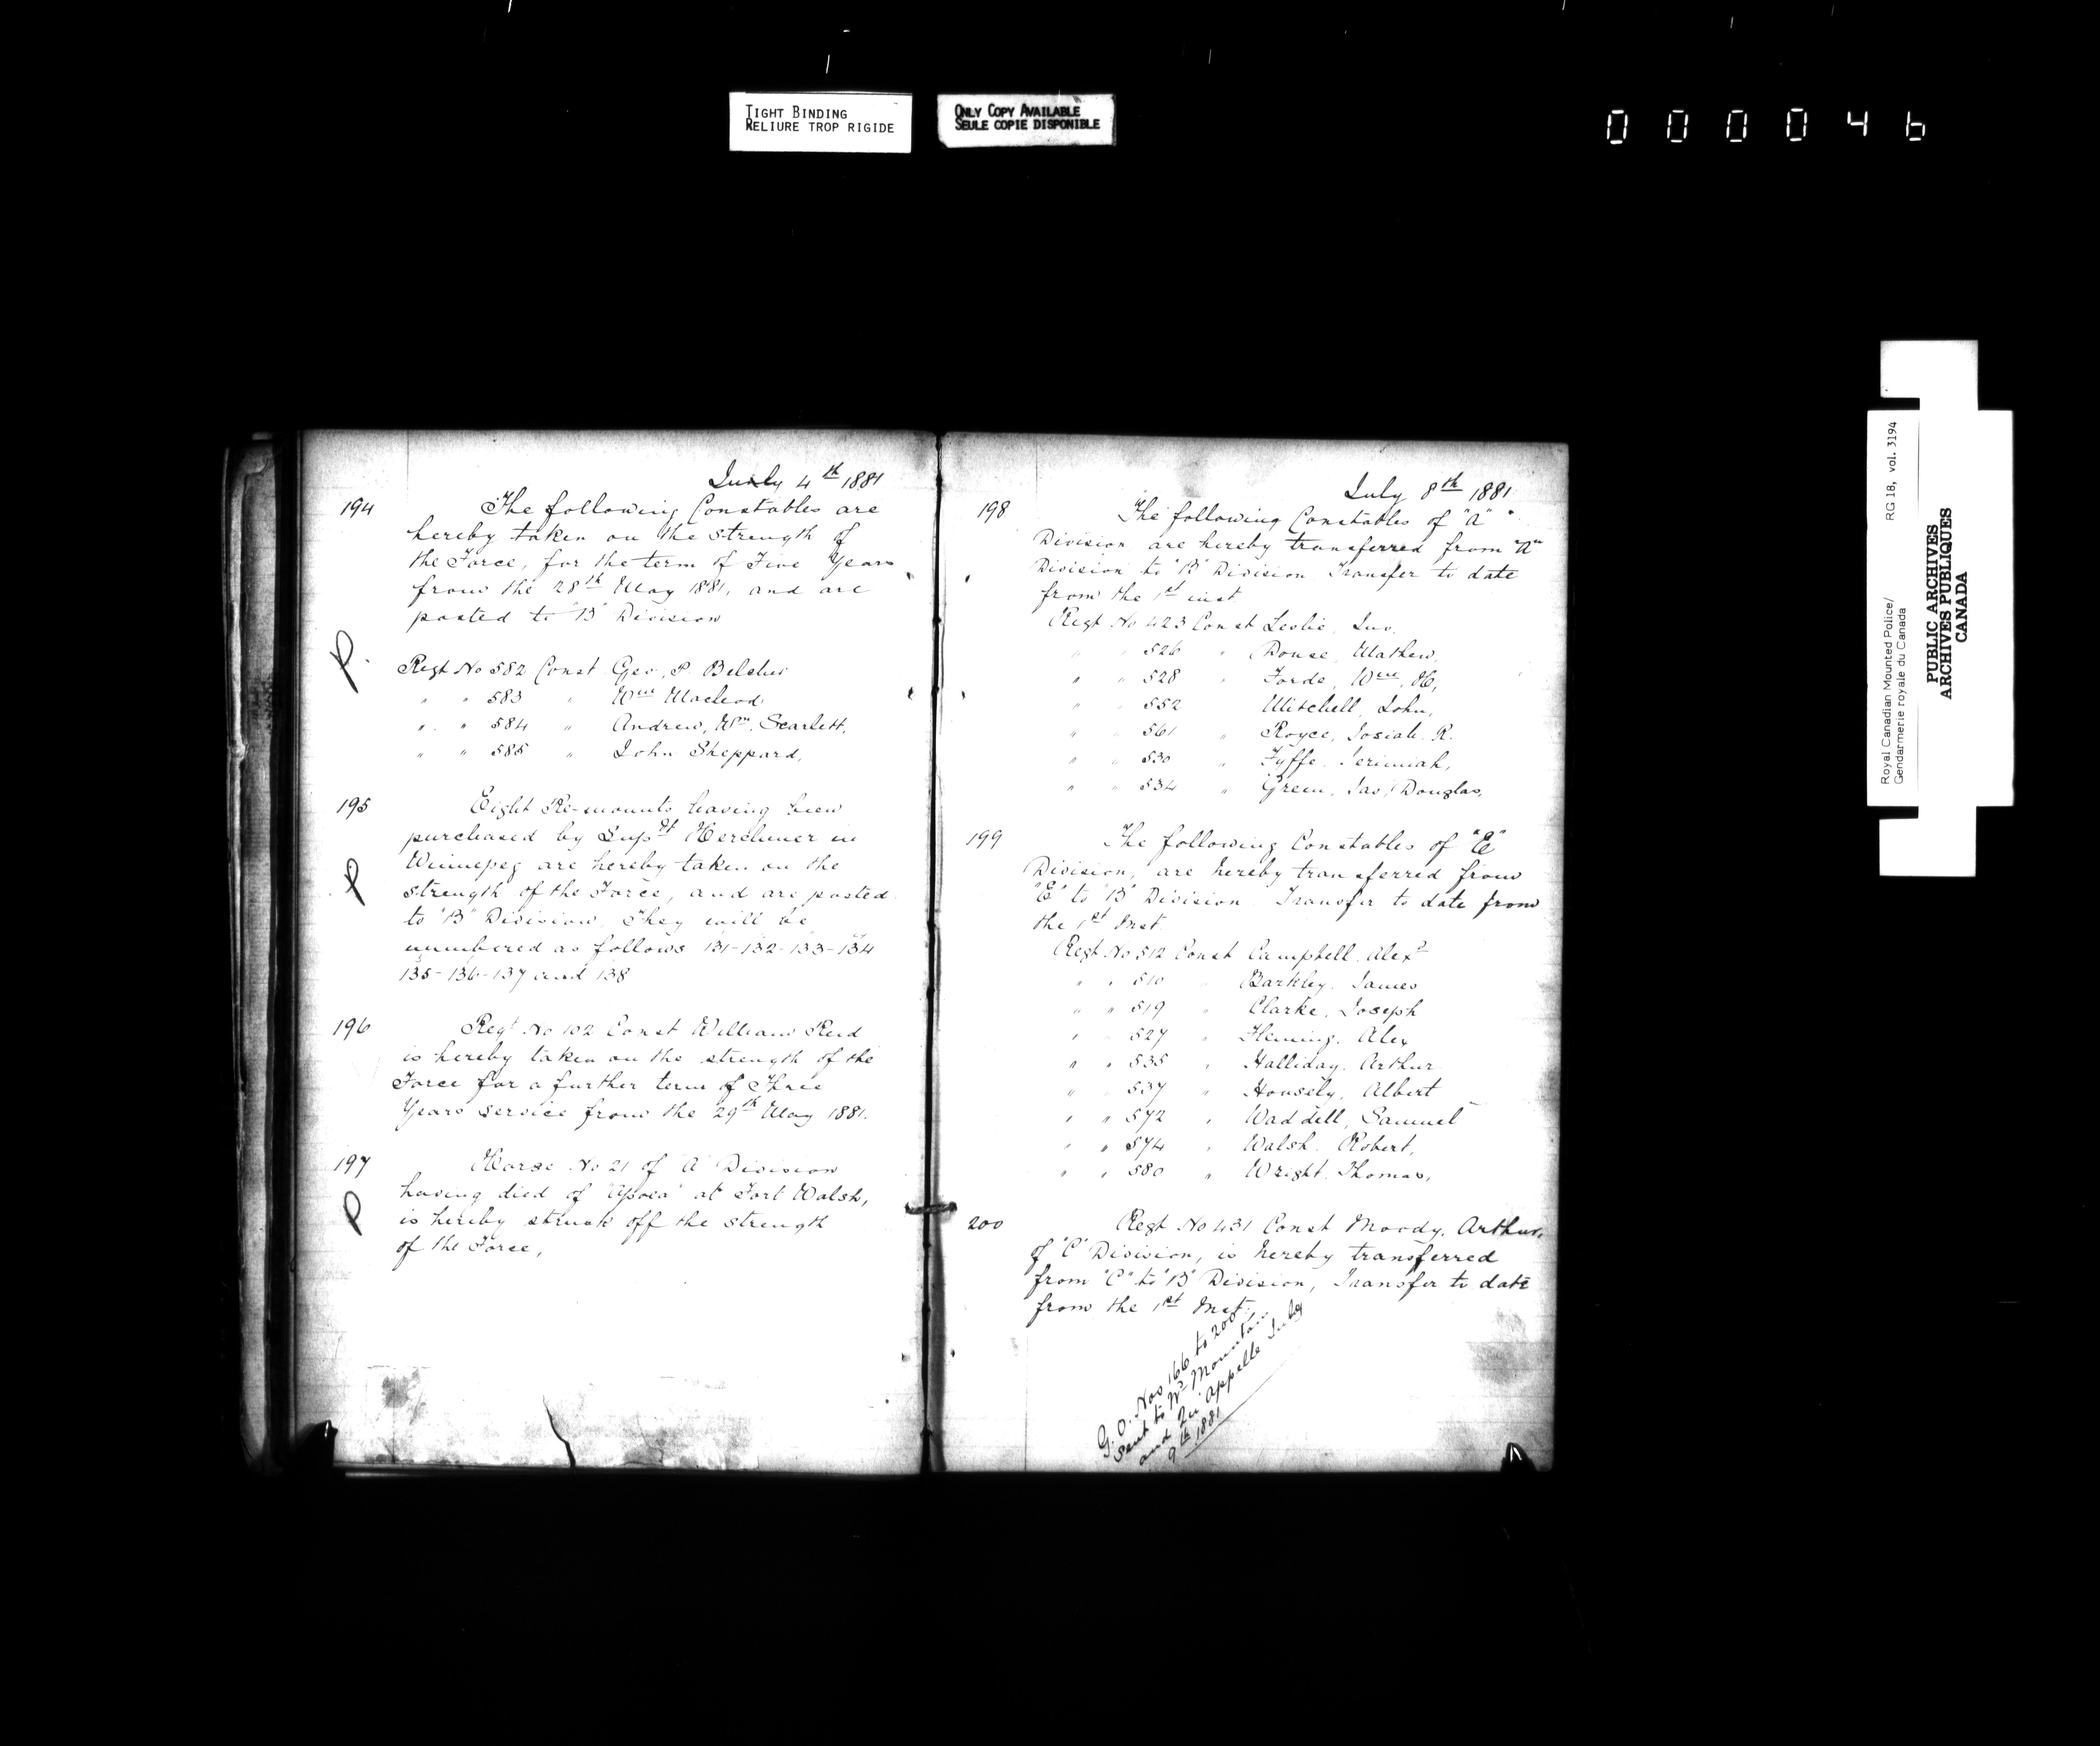 TIGHT BINDING
RELIURE TROP RIGIDE
ONLY COPY AVAILABLE
SEULE COPIE DISPONIBLE
000046
July 4th 1881
194 The following Constables are
hereby taken on the strength of
the Force, for the term of Five Years
from the 28th May 1881, and are
posted to "B" Division
Regt No 582 Const Geo. P. Belcher
" " 583 " Wm Macleod
" " 584 " Andrew, Wm. Scarlett,
" " 585 " John Sheppard,
195 Eight Re-mounts having been
purchased by Supdt Herchmer in
Winnepeg are hereby taken on the
strength of the Force, and are posted
to "B" Division. They will be
numbered as follows 131-132-133-134
135-136-137 and 138
196 Regt No 102 Const William Reid
is hereby taken on the strength of the
Force for a further term of Three
Years service from the 29th May 1881.
197 Horse No 21 of "A" Division
having died of at Fort Walsh,
is hereby struck off the strength
of the Force,
July 8th 1881
198 The following Constables of "A"
Division are hereby transferred from "A"
Division to "B" Division Transfer to date
from the 1st inst
Regt No 423 Const Leslie, Jno.
" " 526 " Douse, Mathew,
" " 528 " Forde, Wm. H,
" " 552 Mitchell, John,
" " 561 " Royce, Josiah. R.
" " 530 " Fyffe, Jerimiah,
" " 534 " Green, Jas, Douglas,
199 The following Constables of "E"
Division, are hereby transferred from
"E" to "B" Division. Transfer to date from
the 1st Inst.
Regt No 512 Const Campbell. Alexr
" " 510 " Barkley. James
" " 519 " Clarke, Joseph
" " 527 " Fleming, Alex
" " 535 " Halliday, Arthur
" " 537 " Housely, Albert
" " 572 " Waddell, Samuel
" " 574 " Walsh. Robert,
" " 580 " Wright. Thomas,
200 Regt No 431 Const Moody, Arthur,
of "C" Division, is hereby transferred
from "C" to "B" Division, Transfer to date
from the 1st Inst.
G. O. Nos 166 to 200
sent to Wd Mountain
and Qu'Appelle July
9th 1881
Royal Canadian Mounted Police/
Gendarmerie royale du Canada
RG 18, vol. 3194
PUBLIC ARCHIVES
ARCHIVES PUBLIQUES
CANADA